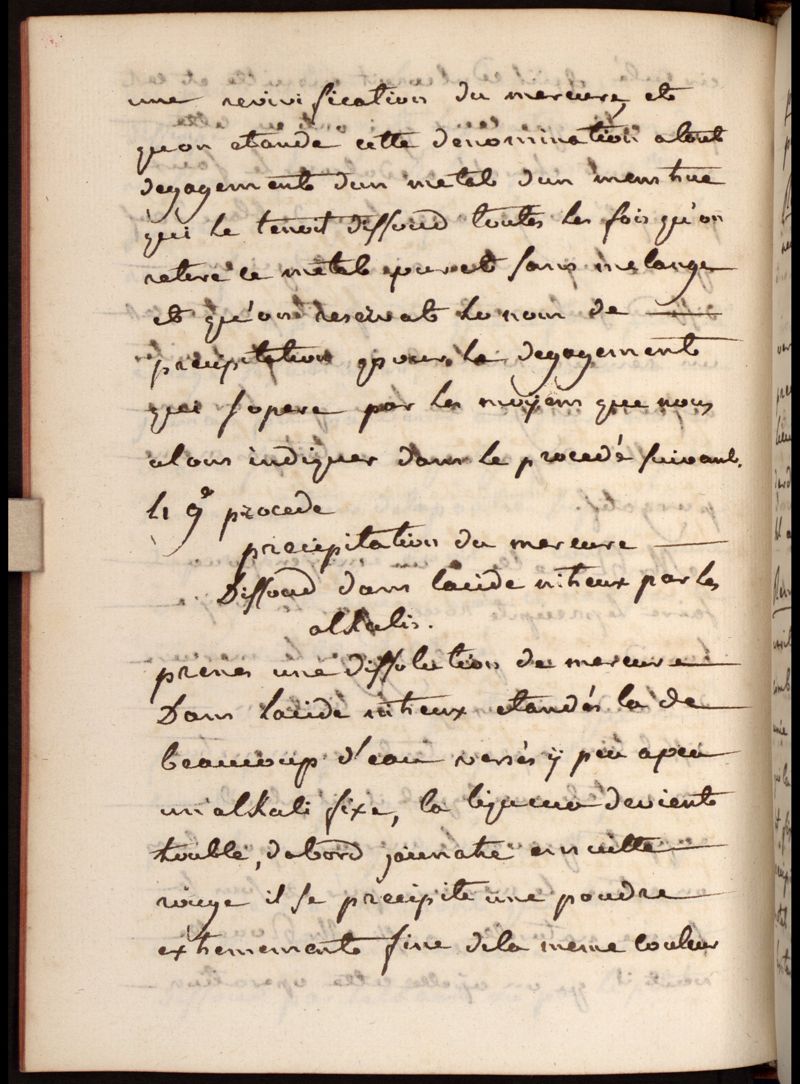 une revivification du mercure, et
qu'on etande cette denomination a tout
degagement d'un metal d'un menstrue
qui le tenoit dissoud toutes les fois qu'on
retire ce metal pur et sans melange
et qu'on reservat le nom de
precipitation pour le degagement
qui s'opere par les moyens que nous
alons indiquer dans le procedé suivant.
le 9e procede
precipitation du mercure
Dissoud dans lacide nitreux par les
alkalis.
prenes une dissolution de mercure
Dans lacide nitreux etandés la de
beaucoup d'eau versés ÿ peu apeu
un alkali fixe, la liqueur devient
trouble, dabord jaunatre ensuitte
rouge il se precipite une poudre
extremement fine dela meme couleur